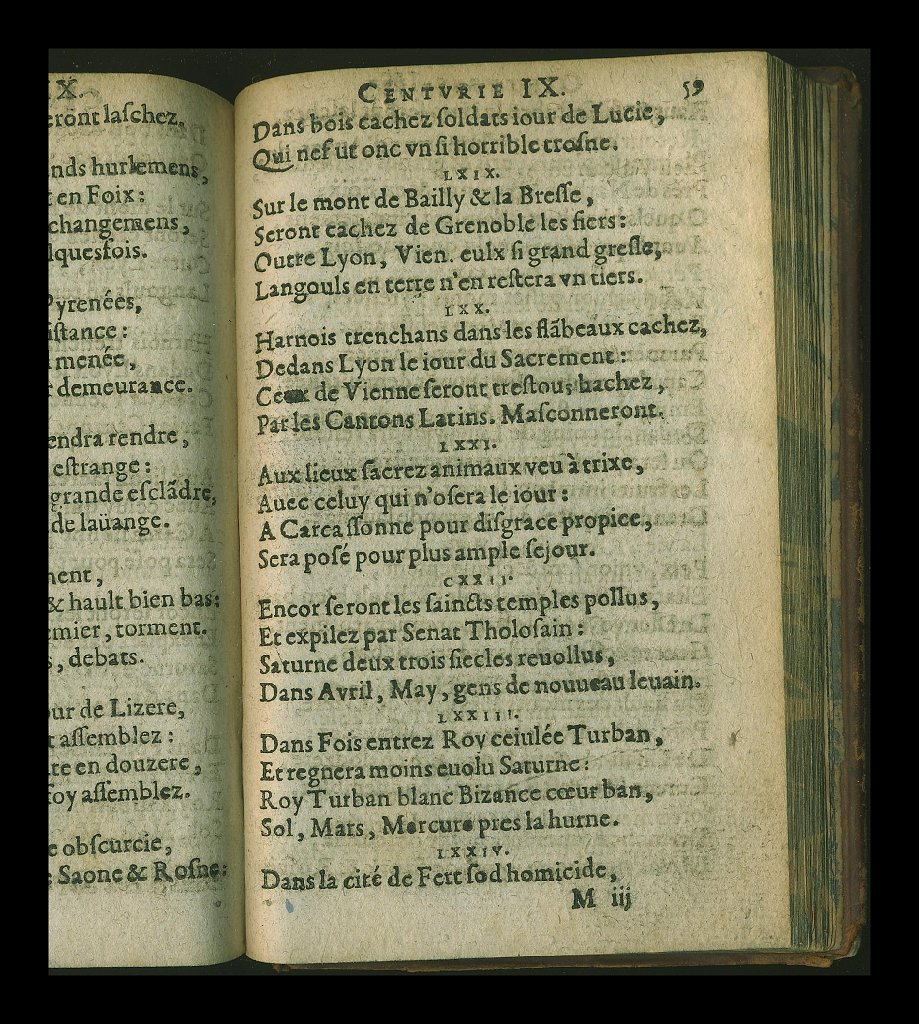 X.
eront laſchez.
nds hurlemens,
en Foix:
changemens,
lquesfois.
Pyrenées,
iſtance:
menée,
demeurance.
endra rendre,
eſtrange:
grande eſclãdre,
de laüange.
ent,
& hault bien bas:
mier, torment.
, debats.
ur de Lizere,
aſſemblez:
te en douzere,
foy aſſemblez.
e obſcurcie,
Saone & Roſne:
CENTVRIE IX. 59
Dans bois cachez ſoldats iour de Lucie,
Qui nef ut onc vn ſi horrible troſne.
LXIX.
Sur le mont de Bailly & la Breſſe,
Seront cachez de Grenoble les fiers:
Outre Lyon, Vien. eulx ſi grand greſle,
Langouls en terre n'en reſtera vn tiers.
LXX.
Harnois trenchans dans les flãbeaux cachez,
Dedans Lyon le iour du Sacrement:
Ceux de Vienne ſeront treſtous hachez,
Par les Cantons Latins. Maſconneront.
LXXI.
Aux lieux ſacrez animaux veu à trixe,
Auec celuy qui n'oſera le iour:
A Carcaſſonne pour diſgrace propice,
Sera poſé pour plus ample ſejour.
CXXII.
Encor ſeront les ſaincts temples pollus,
Et expilez par Senat Tholoſain:
Saturne deux trois ſiecles reuollus,
Dans Avril, May, gens de nouueau leuain.
LXXIII.
Dans Fois entrez Roy ceiulée Turban,
Et regnera moins euolu Saturne:
Roy Turban blanc Bizance cœur ban,
Sol, Mars, Mercure pres la hurne.
LXXIV.
Dans la cité de Fert ſod homicide,
M iij